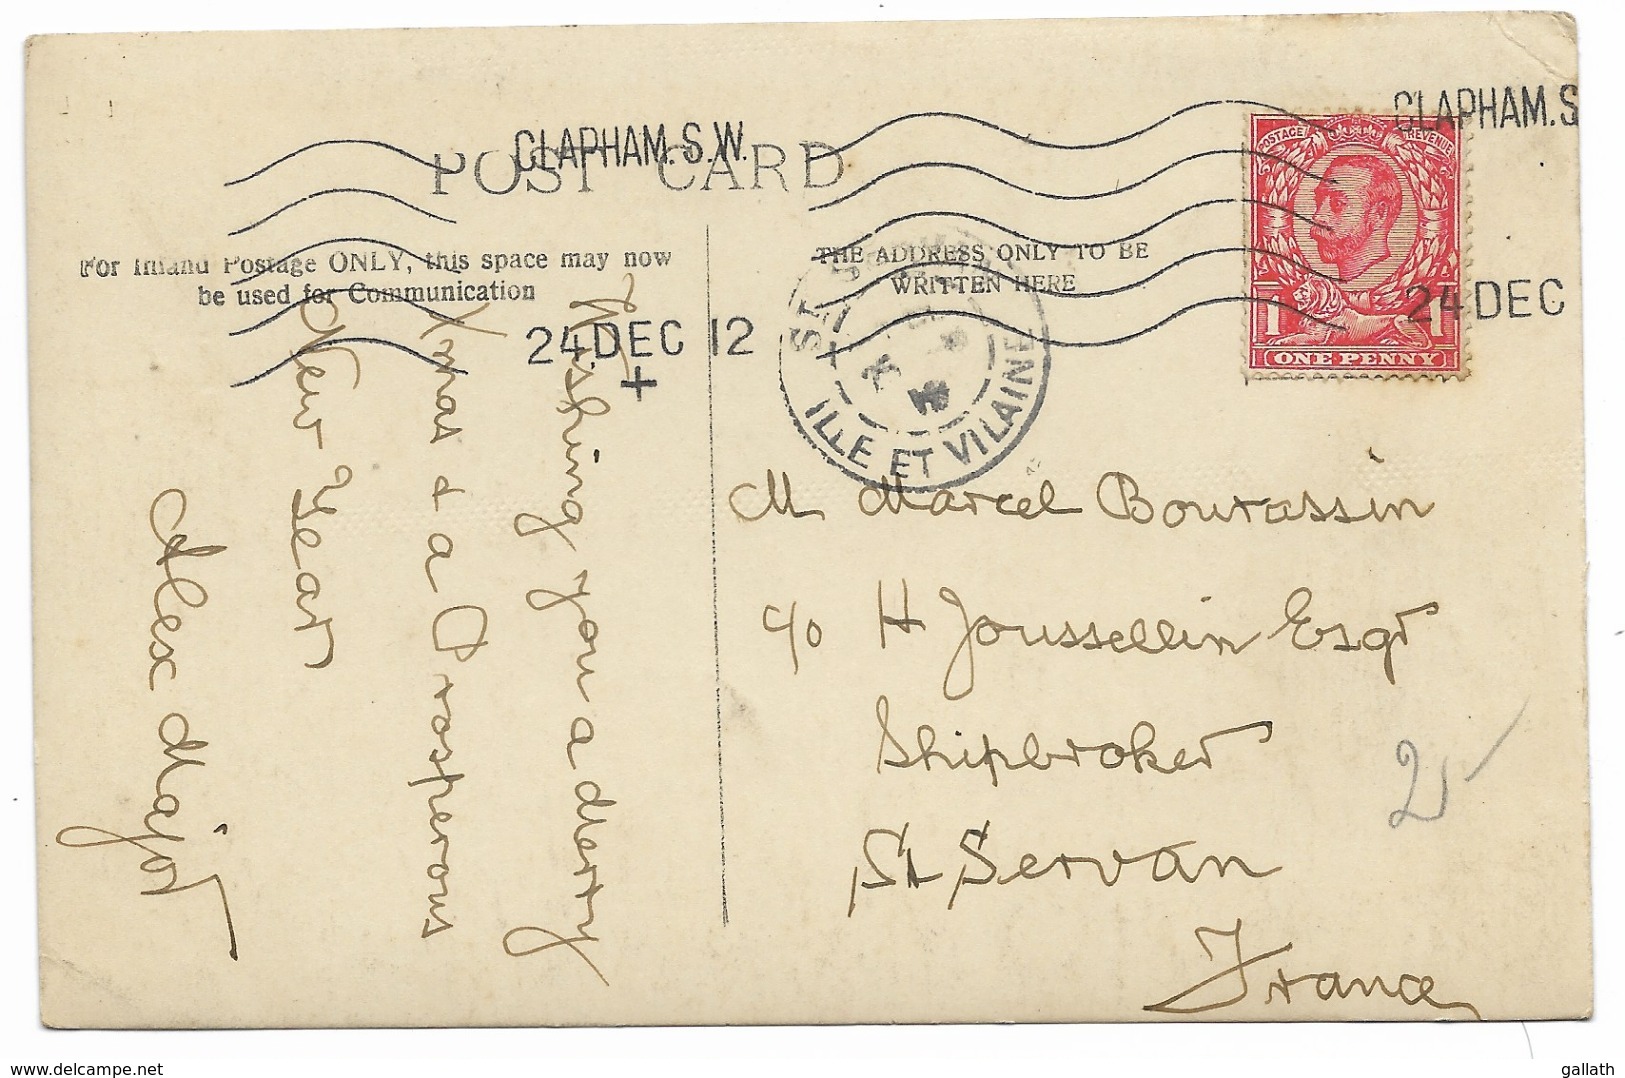 POST CARD
CLAPHAM. S.W.
CLAPHAM. S
For Inland Postage ONLY, this space may now
be used for Communication
THE ADDRESS ONLY TO BE
WRITTEN HERE
24 DEC 12
+
24 DEC
POSTAGE REVENUE
1 1
ONE PENNY
ST
ILLE ET VILAINE
Wishing you a merry
Xmas & a Prosperous
New Year
Alex Major
M Marcel Bourassin
c/o H Joussellin Esqr
Shipbroker
St Servan
France
gallath
www.delcampe.net